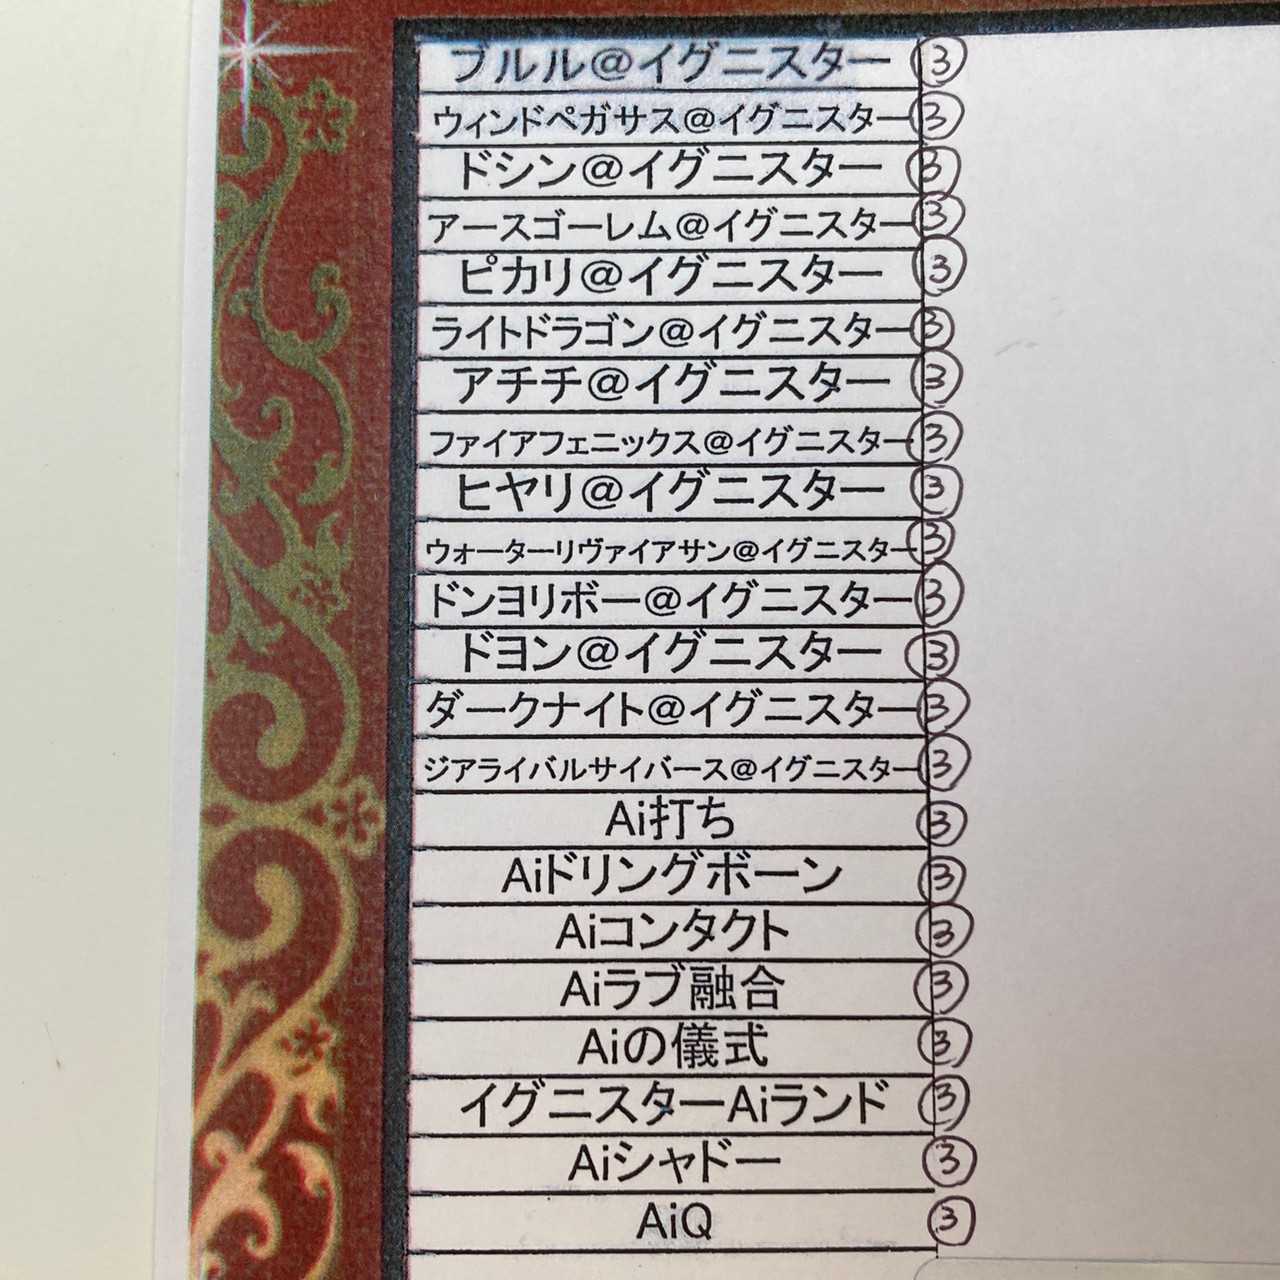 ブルル@イグニスター ③
ウィンドペガサス@イグニスター ③
ドシン@イグニスター ③
アースゴーレム@イグニスター ③
ピカリ@イグニスター ③
ライトドラゴン@イグニスター ③
アチチ@イグニスター ③
ファイアフェニックス@イグニスター ③
ヒヤリ@イグニスター ③
ウォーターリヴァイアサン@イグニスター ③
ドンヨリボー@イグニスター ③
ドヨン@イグニスター ③
ダークナイト@イグニスター ③
ジアライバルサイバース@イグニスター ③
Ai打ち ③
Aiドリングボーン ③
Aiコンタクト ③
Aiラブ融合 ③
Aiの儀式 ③
イグニスターAiランド ③
Aiシャドー ③
AiQ ③